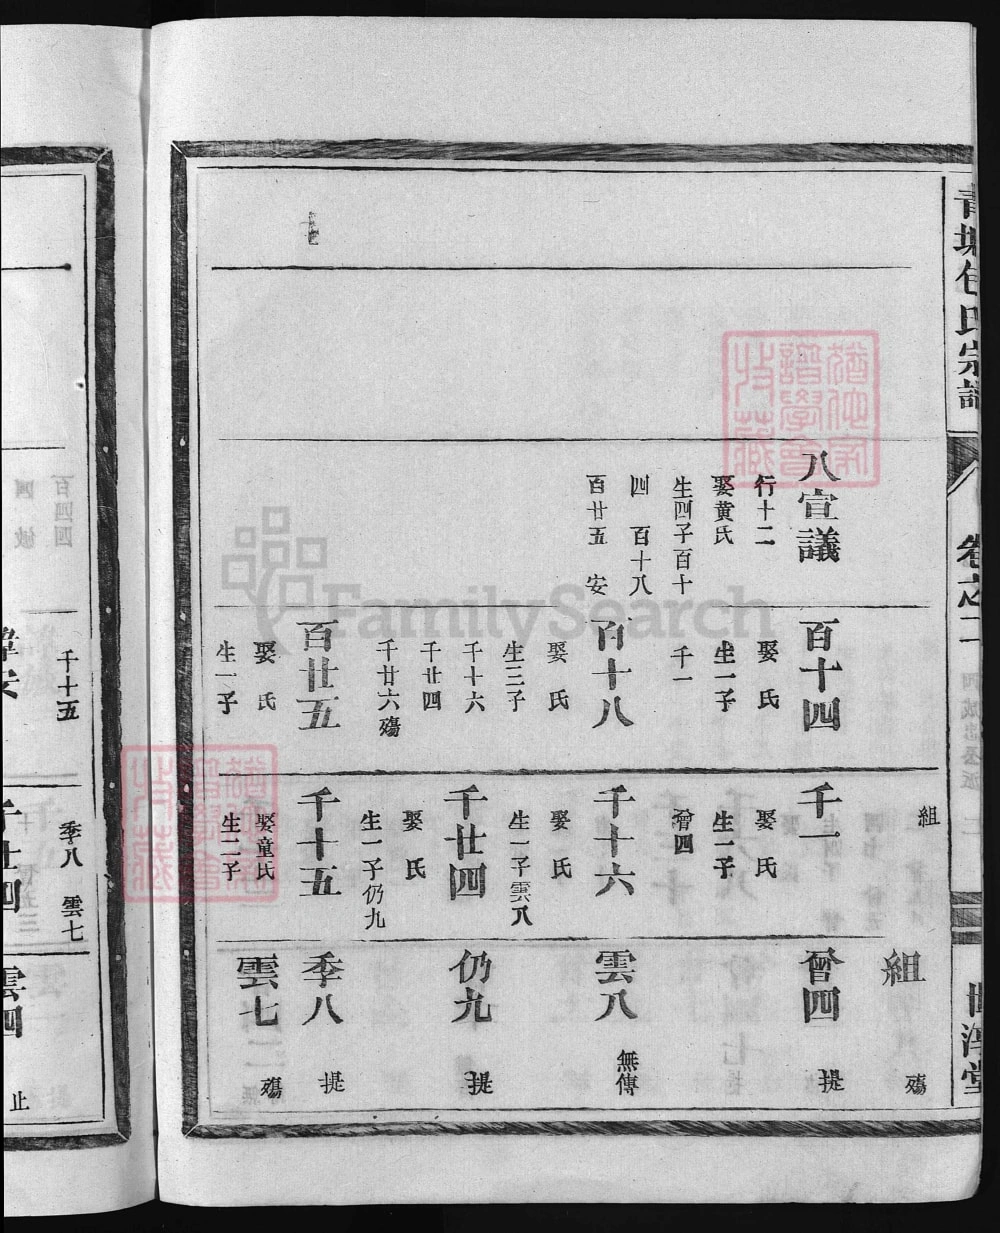 宗譜
卷之二
世淳堂
八宣議
行十二
娶黄氏
生四子百十
四　百十八
百廿五　安
百十四
娶　氏
生一子
千一
百十八
娶　氏
生三子
千十六
千廿四
千廿六殤
百廿五
娶　氏
生一子
千十五
組
千一
娶　氏
生一子
曾四
千十六
娶　氏
生一子雲八
千廿四
娶　氏
生一子仍九
千十五
娶童氏
生二子
季八　雲七
組
殤
曾四
提
雲八
無傳
仍九
提
季八
提
雲七
殤
千廿四
雲四
止
FamilySearch
譜學會